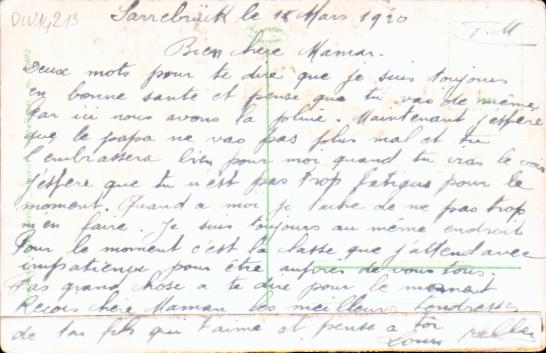 DIV14213
Sarrebrück le 18 Mars 1920
T. M
Bien chère Maman.
Deux mots pour te dire que je suis toujours
en bonne santé et pense que tu vas de même,
Par ici nous avons la pluie. Maintenant j'espère
que le papa ne vas pas plus mal et tu
l'embrassera bien pour moi quand tu vras le voir
j'espère que tu n'est pas trop fatigué pour le
moment. Quand a moi je tache de ne pas trop
m'en faire. Je suis toujours au même endroit
Pour le moment c'est la classe que j'attend avec
impatience pour être auprès de vous tous.
Pas grand chose a te dire pour le moment
Reçois chère Maman les meilleurs tendresses
de ton fils qui t'aime et pense a toi
Louis